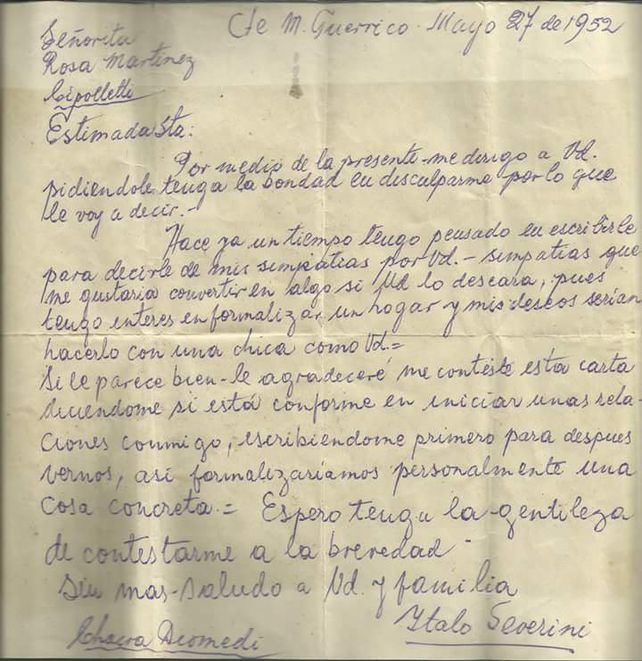 Cte M. Guerrico. Mayo 27 de 1952
Señorita
Rosa Martinez
Cipolletti
Estimada Sta:
Por medio de la presente me dirigo a Vd.
pidiendole tenga la bondad en disculparme por lo que
le voy a decir.-
Hace ya un tiempo tengo pensado en escribirle
para decirle de mis simpatias por Vd.- simpatias que
me gustaria convertir en algo si Vd lo deseara, pues
tengo interes en formalizar un hogar y mis deseos serian
hacerlo con una chica como Vd.=
Si le parece bien-le agradeceré me conteste esta carta
diciendome si está conforme en iniciar unas rela-
ciones conmigo, escribiendome primero para despues
vernos, asi formalizariamos personalmente una
cosa concreta.= Espero tenga la gentileza
de contestarme a la brevedad-
Sin mas-saludo a Vd. y familia
Chacra Diomedi
Italo Severini